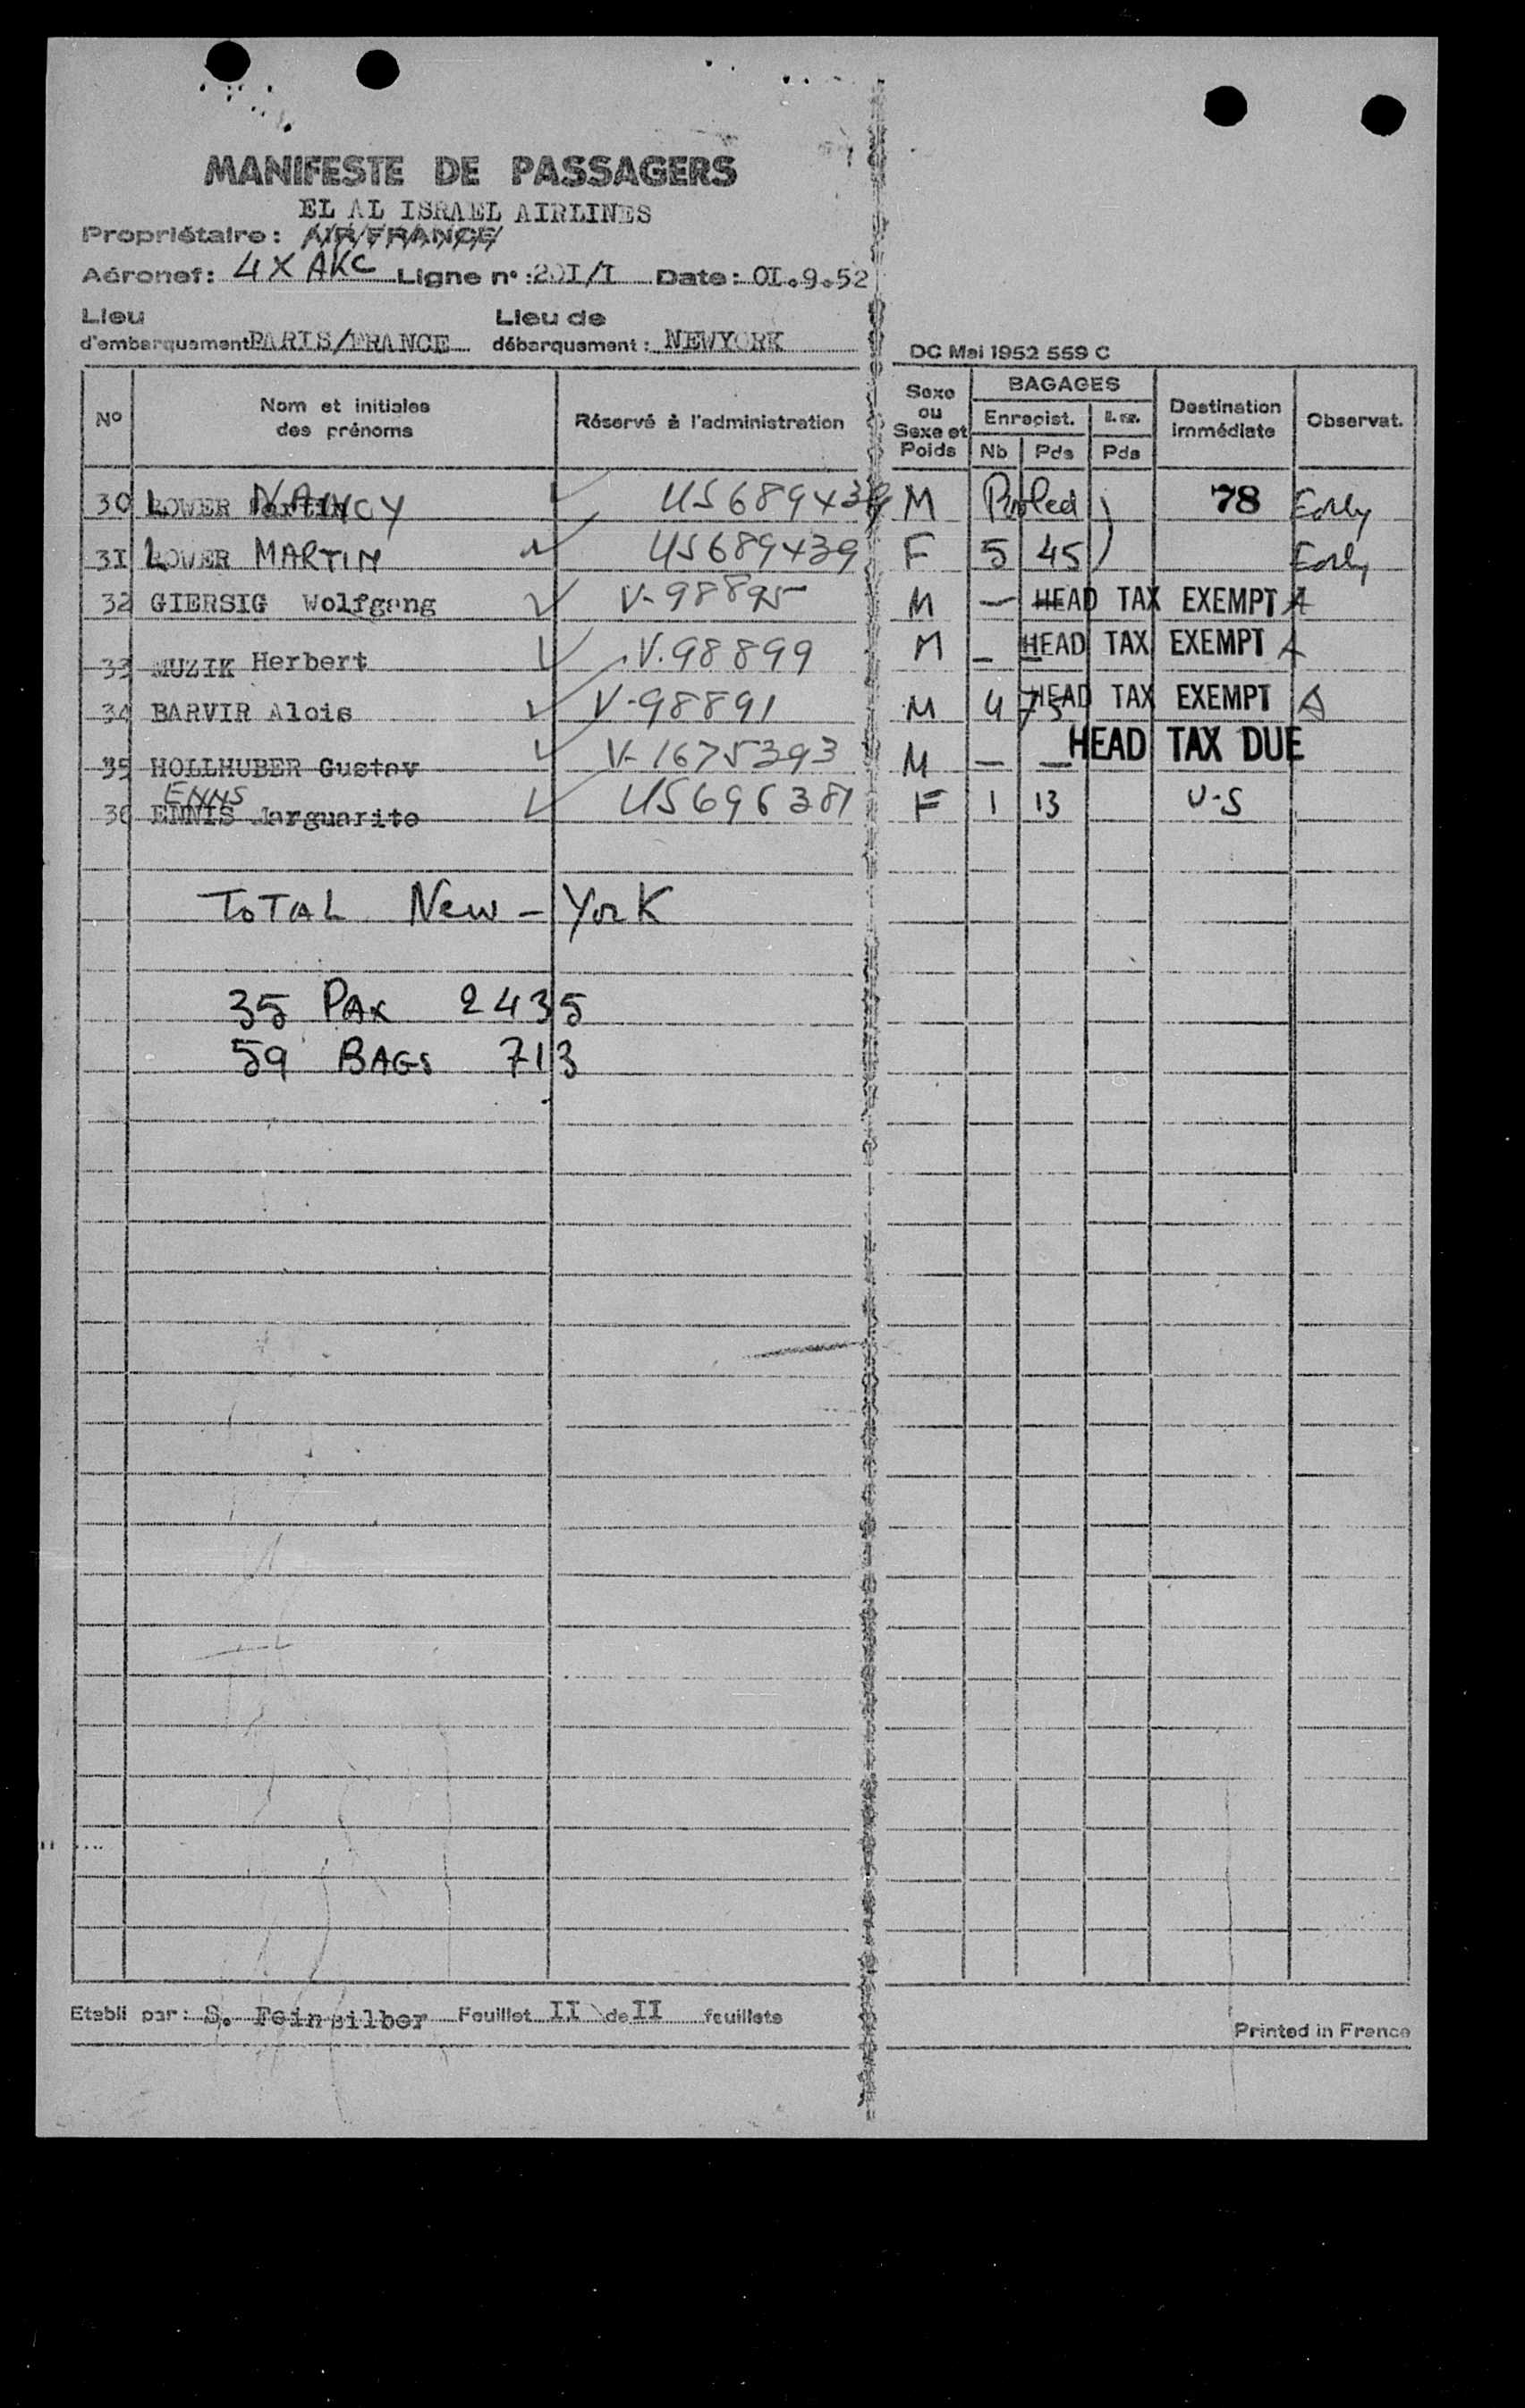 MANIFESTE DE PASSAGERS
EL AL ISRAEL AIRLINES
Propriétaire: AIR FRANCE
Aéronef: 4X AKC Ligne n°: 20I/I Date: OI.9.52
Lieu d'embarquement PARIS/FRANCE Lieu de débarquement: NEWYORK
DC Mai 1952 559 C
N° Nom et initiales des prénoms Réservé à l'administration Sexe ou Sexe et Poids BAGAGES Enregist. Nb Pds Pds Destination immédiate Observat.
30 LOWER NANCY US689439 M Pooled ) 78 Early
31 LOWER MARTIN US689439 F 5 45 ) Early
32 GIERSIG Wolfgang V-98895 M — HEAD TAX EXEMPT A
33 MUZIK Herbert V.98899 M — HEAD TAX EXEMPT A
34 BARVIR Alois V-98891 M 4 75 HEAD TAX EXEMPT A
35 HOLLHUBER Gustav V-1675393 M — — HEAD TAX DUE
ENNS
36 ENNIS Marguarite US696381 F 1 13 U-S
TOTAL New-York
35 PAX 2435
59 BAGS 713
Etabli par: S. Feinsilber Feuillet II de II feuillets
Printed in France